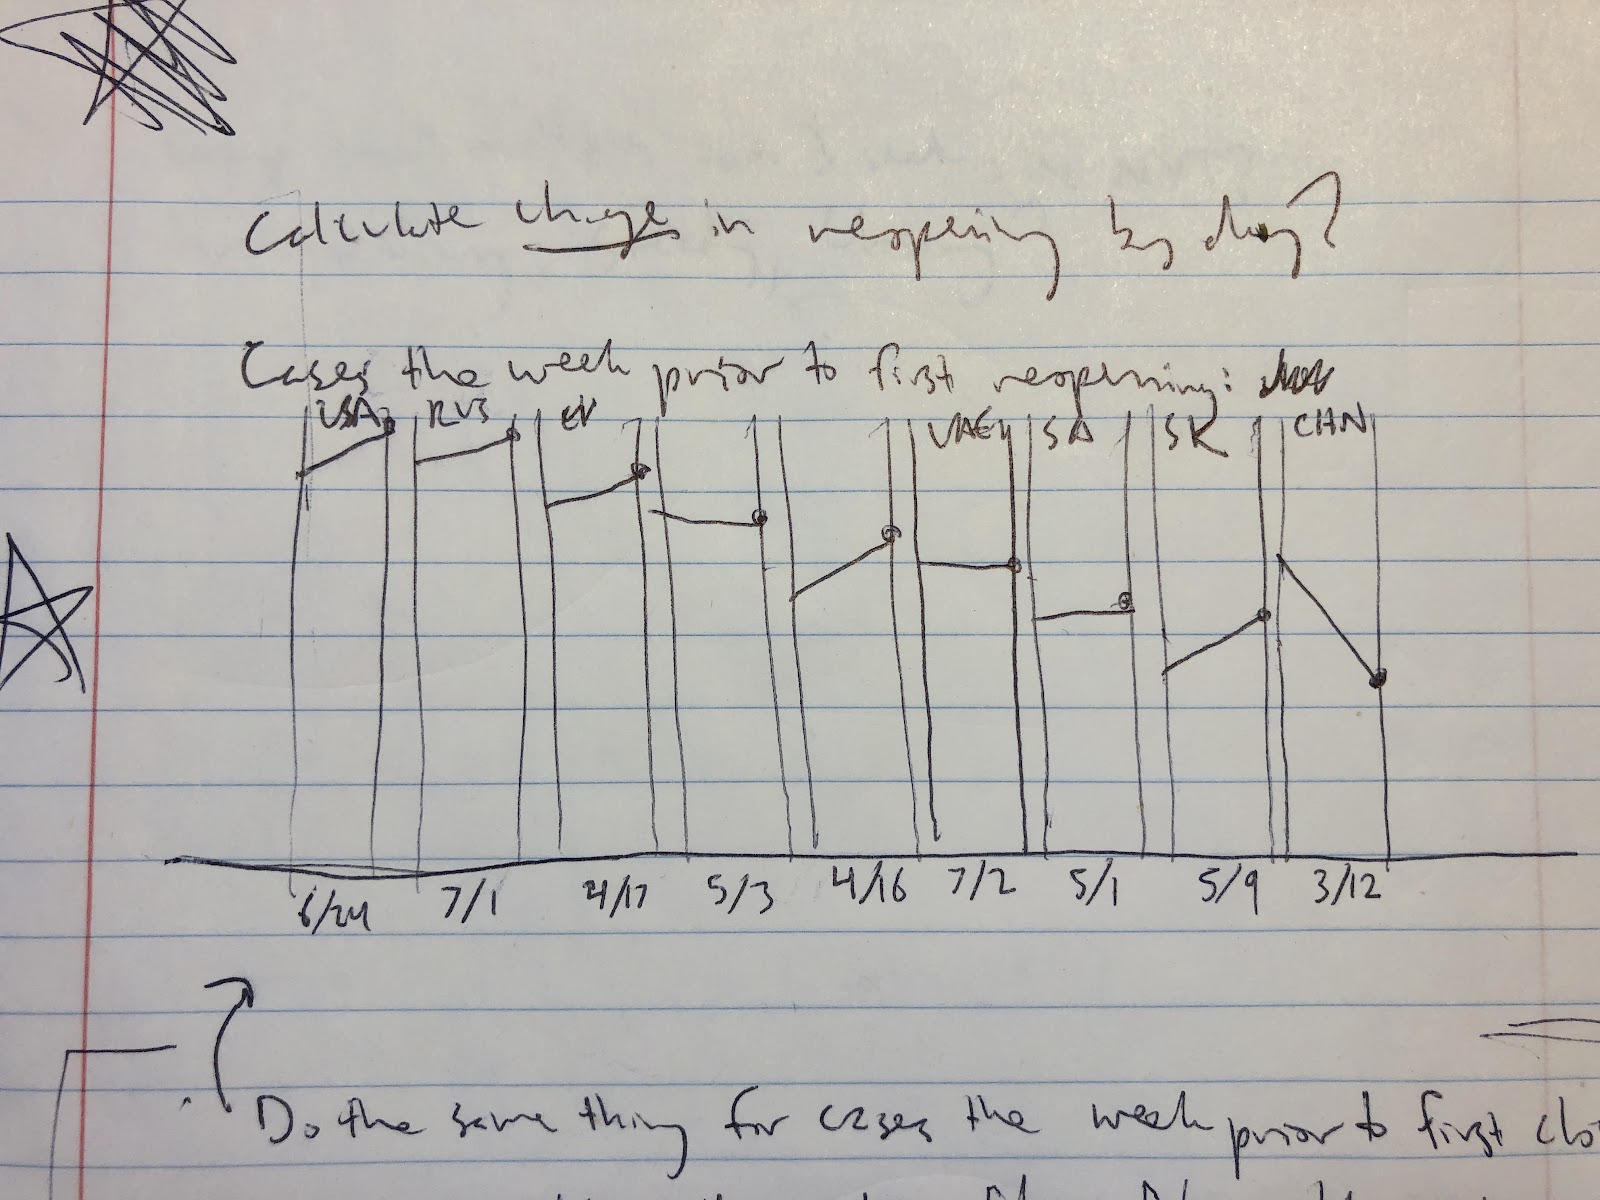 Calculate change in reopening by day?
Cases the week prior to first reopening:
USA RUS EU UAE SA SK CHN
6/24 7/1 4/17 5/3 4/16 7/2 5/1 5/9 3/12
Do the same thing for cases the week prior to first clo